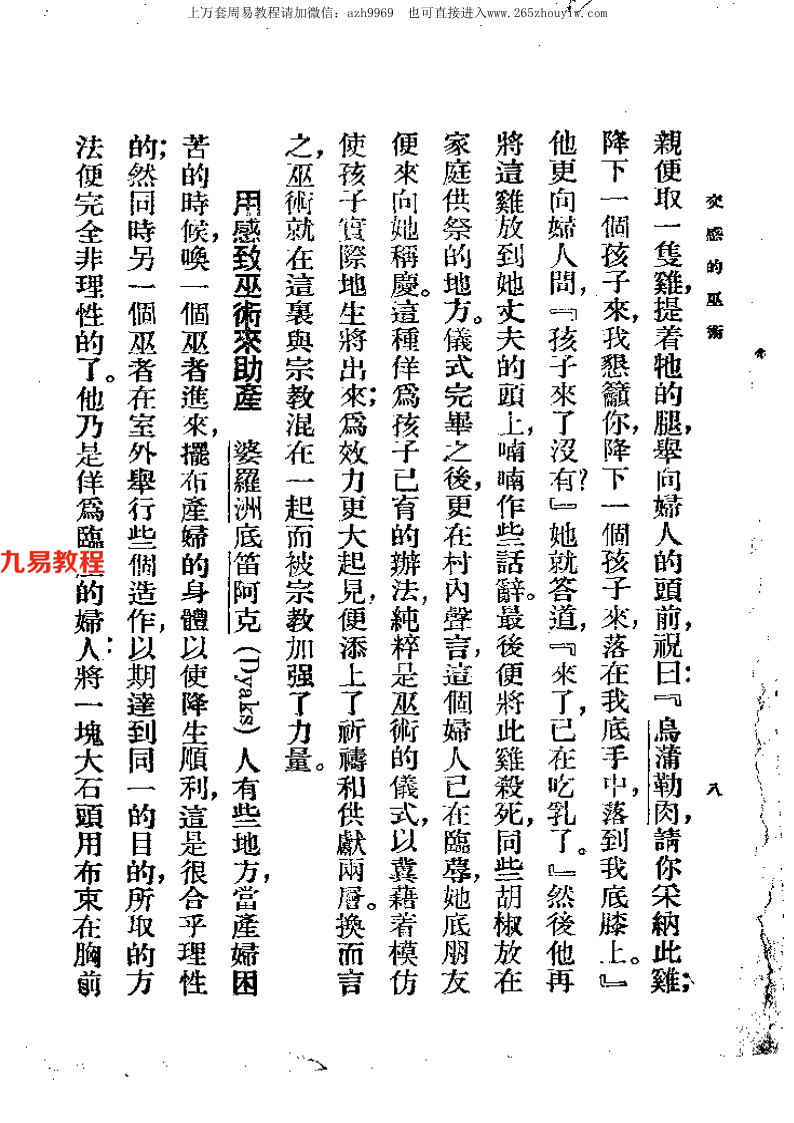 上万套周易教程请加微信：azh9969 也可直接进入www.265zhouyiw.com
交感的巫術
八
親便取一隻雞，提着牠的腿，舉向婦人的頭前，祝曰：『烏蒲勒肉，請你采納此雞；
降下一個孩子來，我懇籲你，降下一個孩子來，落在我底手中，落到我底膝上。』
他更向婦人問，『孩子來了沒有？』她就答道，『來了，已在吃乳了。』然後他再
將這雞放到她丈夫的頭上，喃喃作些話辭。最後便將此雞殺死，同些胡椒放在
家庭供祭的地方。儀式完畢之後，更在村內聲言，這個婦人已在臨蓐，她底朋友
便來向她稱慶。這種佯爲孩子已有的辦法，純粹是巫術的儀式，以冀藉着模仿
使孩子實際地生將出來；爲效力更大起見，便添上了祈禱和供獻兩層。換而言
之，巫術就在這裏與宗教混在一起而被宗教加强了力量。
用感致巫術來助產 婆羅洲底笛阿克（Dyaks）人有些地方，當產婦困
苦的時候，喚一個巫者進來，擺布產婦的身體以使降生順利，這是很合乎理性
的；然同時另一個巫者在室外舉行些個造作，以期達到同一的目的，所取的方
法便完全非理性的了。他乃是佯爲臨的婦人：將一塊大石頭用布束在胸前
九易教程